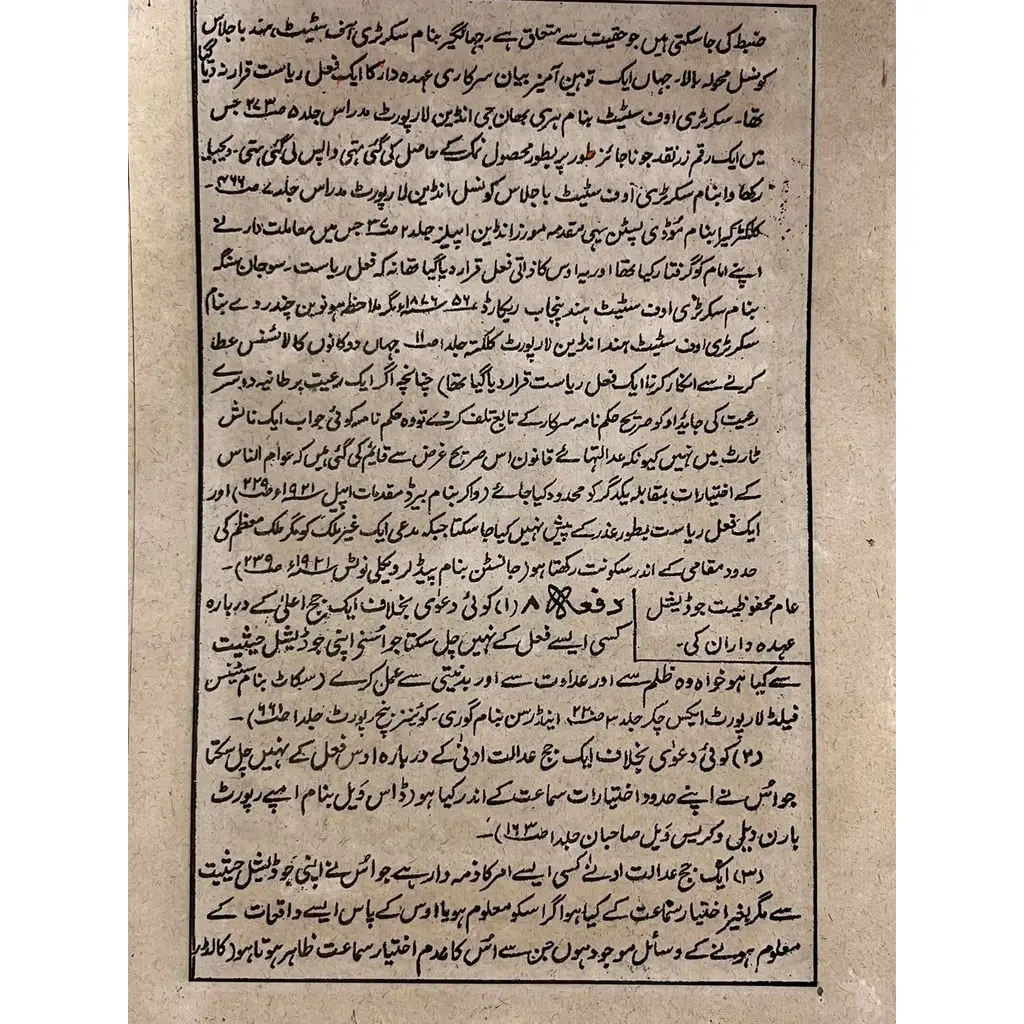 ضبط کی جا سکتی ہیں جو حقیت سے متعلق ہے۔ جہانگیر بنام سکرٹری آف سٹیٹ، ہند باجلاس
کونسل محولہ بالا۔ جہاں ایک توہین آمیز بیان سرکاری عہدہ دار کا ایک فعل ریاست قرار نہ دیا گیا
تھا۔ سکرٹری اوف سٹیٹ بنام ہری بھان جی انڈین لا رپورٹ مدراس جلد ۵ صـ ۲۷۳ جس
میں ایک رقم زر نقد جو ناجائز طور پر بطور محصول نمک کے حاصل کی گئی تھی واپس لی گئی تھی۔
بنام سکرٹری اوف سٹیٹ باجلاس کونسل انڈین لا رپورٹ مدراس جلد ۷ صـ ۴۶۶۔
کلکٹر کیرا بنام مقدمہ مورز انڈین اپیلز جلد ۲ صـ جس میں معاملت دار نے
اپنے امام کو گرفتار کیا تھا اور یہ اوس کا ذاتی فعل قرار دیا گیا تھا نہ کہ فعل ریاست۔ سوجان سنگہ
بنام سکرٹری اوف سٹیٹ ہند پنجاب ریکارڈ ۵۶ ۱۸۷۶ء مگر ملاحظہ ہو نوبن چندر دے بنام
سکرٹری اوف سٹیٹ ہند انڈین لا رپورٹ کلکتہ جلد ا صـ ۱۱ جہاں دوکانوں کا لائسنس عطا
کرنے سے انکار کرنا ایک فعل ریاست قرار دیا گیا تھا) چنانچہ اگر ایک رعیت برطانیہ دوسرے
رعیت کی جایداد کو صریح حکم نامہ سرکار کے تابع تلف کرے تو وہ حکم نامہ کوئی جواب ایک نالش
ٹارٹ میں نہیں کیونکہ عدالتہائے قانون اس صریح غرض سے قایم کی گئی ہیں کہ عوام الناس
کے اختیارات بمقابلہ یکدگر کو محدود کیا جائے (واکر بنام بیرڈ مقدمات اپیل ۱۹۲۱ء صـ ۲۲۹) اور
ایک فعل ریاست بطور عذر کے پیش نہیں کیا جا سکتا جبکہ مدعی ایک غیر ملک کو مگر ملک معظم کی
حدود مقامی کے اندر سکونت رکھتا ہو (جانسٹن بنام پیڈلر ویکلی نوٹس ۱۹۲۱ء صـ ۲۳۹)۔
عام محفوظیت جوڈیشل
عہدہ داران کی۔
دفعہ ۸ (۱) کوئی دعوٰی بخلاف ایک جج اعلیٰ کے دربارہ
کسی ایسے فعل کے نہیں چل سکتا جو اسنی اپنی جوڈیشل حیثیت
سے کیا ہو خواہ وہ ظلم سے اور عداوت سے اور بدنیتی سے عمل کرے (سکاٹ بنام سٹینس
فیلڈ لا رپورٹ ایکس چکر جلد ۳ صـ ۲۲۰، اینڈرسن بنام گوری۔ کوئینز بنچ رپورٹ جلد ا صـ ۶۶۱)۔
(۲) کوئی دعوٰی بخلاف ایک جج عدالت ادنیٰ کے دربارہ اوس فعل کے نہیں چل سکتا
جو اُس نے اپنے حدود اختیارات سماعت کے اندر کیا ہو (ڈاس ویل بنام امپے رپورٹ
بارن ویلی و کریس ویل صاحبان جلد ا صـ ۱۶۳)۔
(۳) ایک جج عدالت ادنےٰ کسی ایسے امر کا ذمہ دار ہے جو اُس نے اپنی جوڈیشل حیثیت
سے مگر بغیر اختیار سماعت کے کیا ہو اگر اسکو معلوم ہو یا اوس کے پاس ایسے واقعات کے
معلوم ہونے کے وسائل موجود ہوں جن سے اُس کا عدم اختیار سماعت ظاہر ہوتا ہو (کالڈر